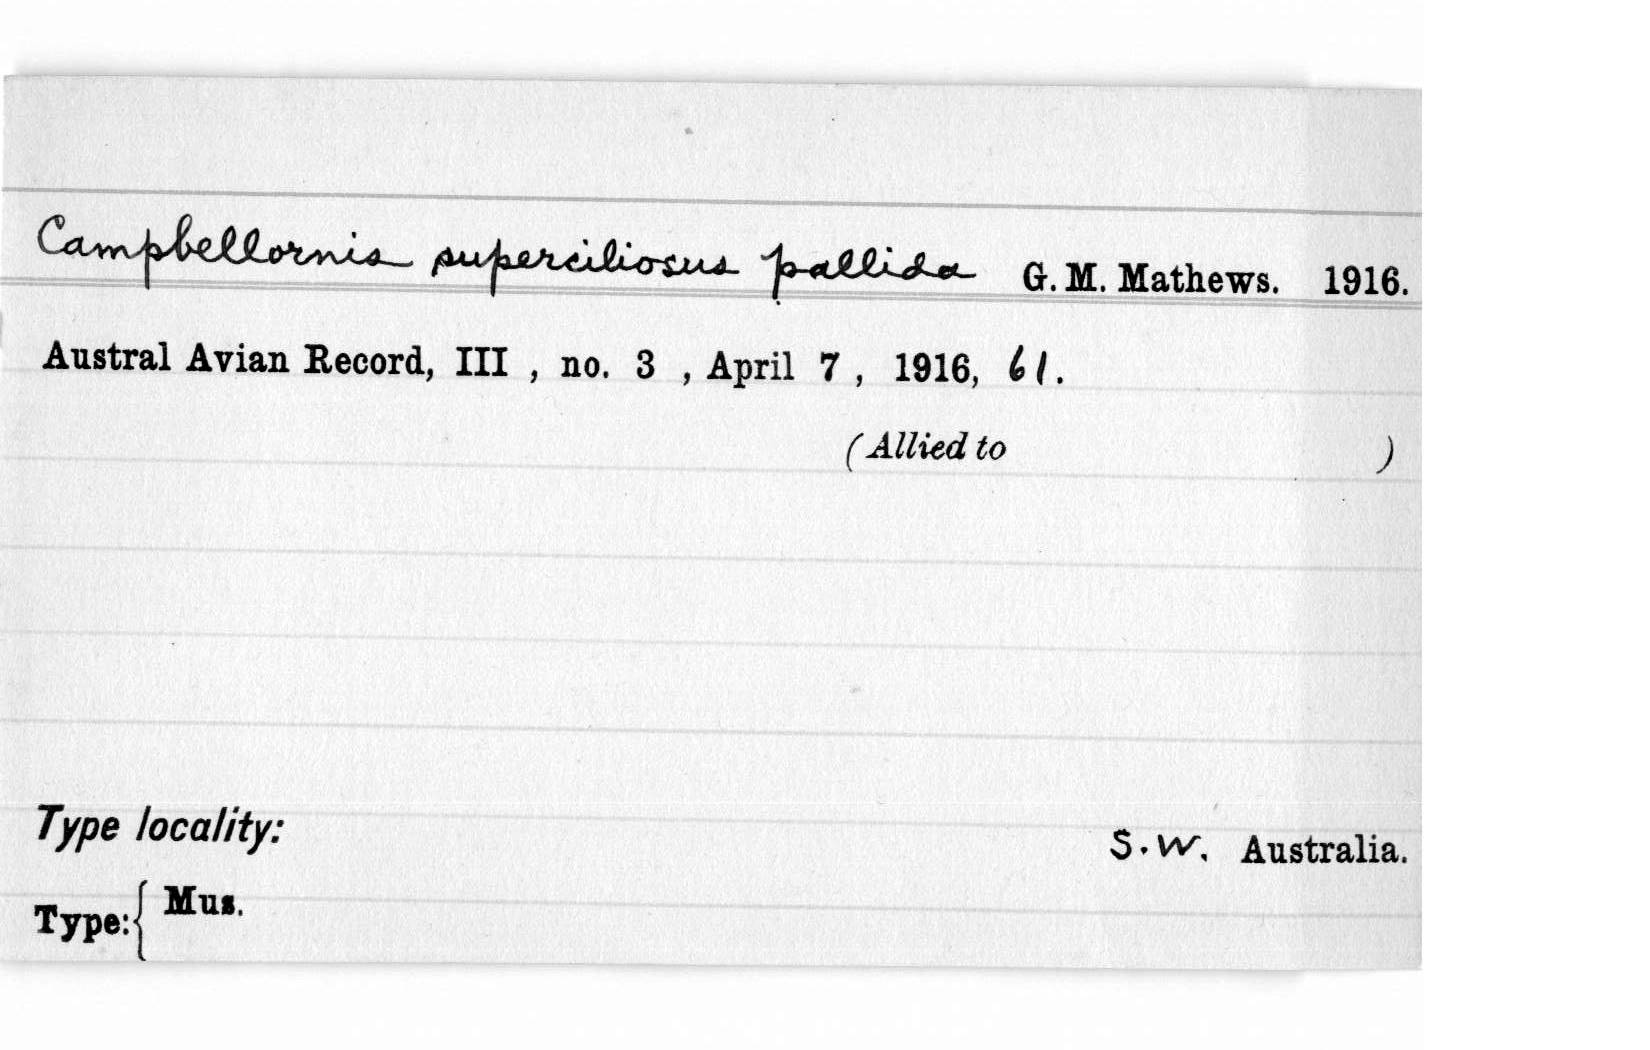 Campbellornis superciliosus pallida G. M. Mathews. 1916.
Austral Avian Record, III , no. 3 , April 7 , 1916, 61.
(Allied to )
Type locality: S.W. Australia.
Type:{ Mus.